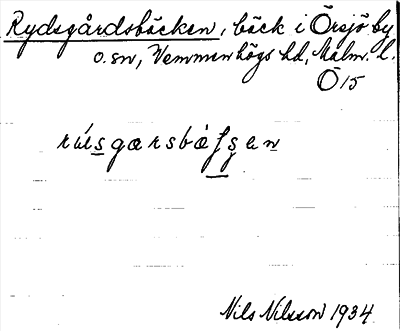 Rydsgårdsbäcken, bäck i Örsjö by
o. sn, Vemmenhögs hd, Malm. l.
Ö 15
Nils Nilsson 1934